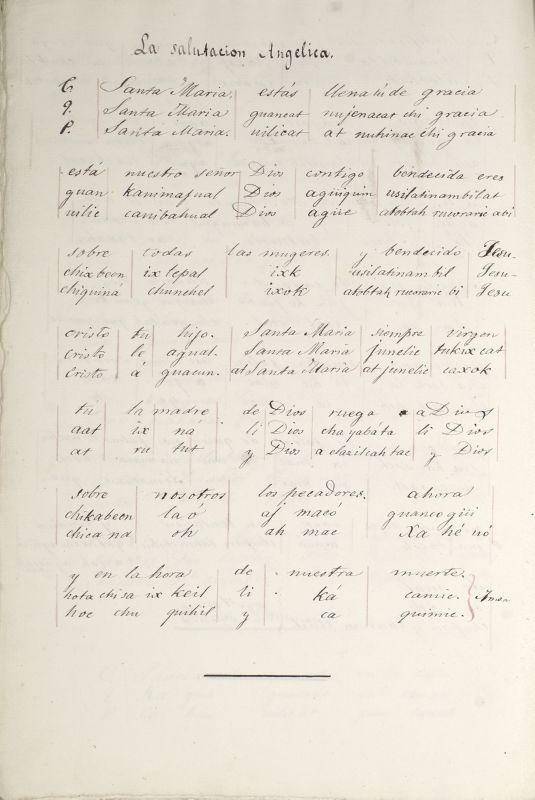 La salutacion Angelica.
C. Santa Maria. estás llena tú de gracia
q. Santa Maria guancat nujenacat chi gracia
P. Santa Maria. uilicat at nuhinac chi gracia
está nuestro señor Dios contigo bendecida eres
guan kanimajual Dios agüiquin usilatinambilat
uilic canibahual Dios agüe atobtah rucorarie abi
sobre todas las mugeres. y bendecido Jesu-
chixbeen ix lepal ixk usilatinambil Jesu-
chiquiná chunchel ixok atobtah rucorarie bi Jesu
cristo tu hijo. Santa Maria siempre virgen
cristo lo agual. Santa Maria junelic tukix cat
cristo á guacun. at Santa Maria at junelic caxok
tú la madre de Dios ruega a Dios
aat ix ná li Dios chayabáta li Dios
at ru tut y Dios a claxilcah tac y Dios
sobre nosotros los pecadores. ahora
chikabeen la ó aj macó guancogüi
chica na oh ah mac Xa hé uó
y en la hora de nuestra muerte.
hota chisa ix keil li ká camic. Amen
hoc chu quihil y ca quimic.